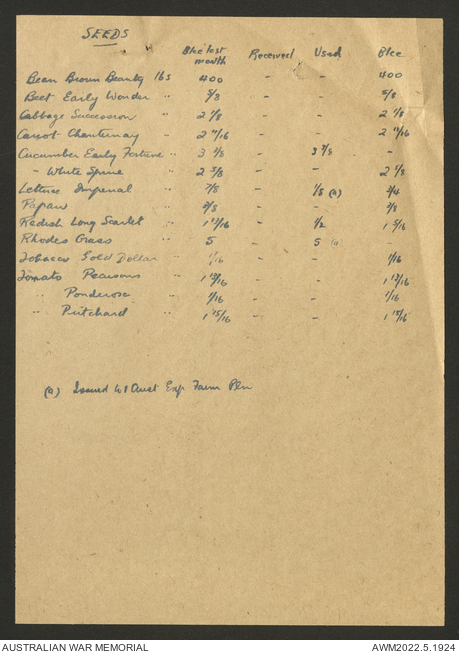 SEEDS
Blce last month Received Used Blce
Bean Brown Beauty lbs 400 - - 400
Beet Early Wonder " 5/8 - - 5/8
Cabbage Succession " 2 1/8 - - 2 1/8
Carrot Chantenay - 2 11/16 - - 2 11/16
Cucumber Early Fortune " 3 7/8 - 3 7/8 -
" White Spine " 2 5/8 - - 2 5/8
Lettuce Imperial " 7/8 - 1/8 (a) 3/4
Papaw " 3/8 - - 3/8
Radish Long Scarlet " 1 13/16 - 1/2 1 5/16
Rhodes Grass " 5 - 5 (a) -
Tobacco Gold Dollar " 1/16 - - 1/16
Tomato Pearsons " 1 13/16 - - 1 13/16
" Ponderosa " 1/16 - - 1/16
" Pritchard " 1 15/16 - - 1 15/16
(a) Issued to 1 Aust Exp Farm Pln
AUSTRALIAN WAR MEMORIAL AWM2022.5.1924